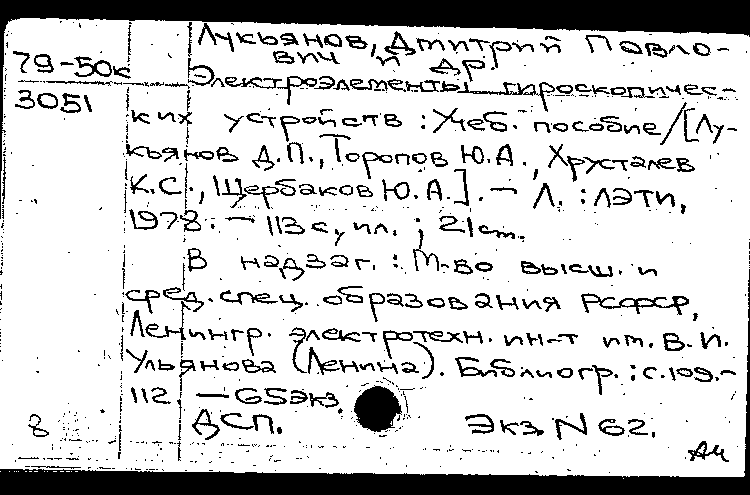 Лукьянов, Дмитрий Павло-
вич и др.
79-50к
Электроэлементы гироскопичес-
3051
ких устройств : Учеб. пособие / [Лу-
кьянов Д.П., Торопов Ю.А., Хрусталев
К.С., Щербаков Ю.А.]. — Л. : ЛЭТИ,
1978. — 113 с, ил. ; 21 см.
В надзаг. : М-во высш. и
сред. спец. образования РСФСР,
Ленингр. электротехн. ин-т им. В.И.
Ульянова (Ленина). Библиогр. : с.109.-
112. — 65 экз.
8 ДСП. Экз. N 62.